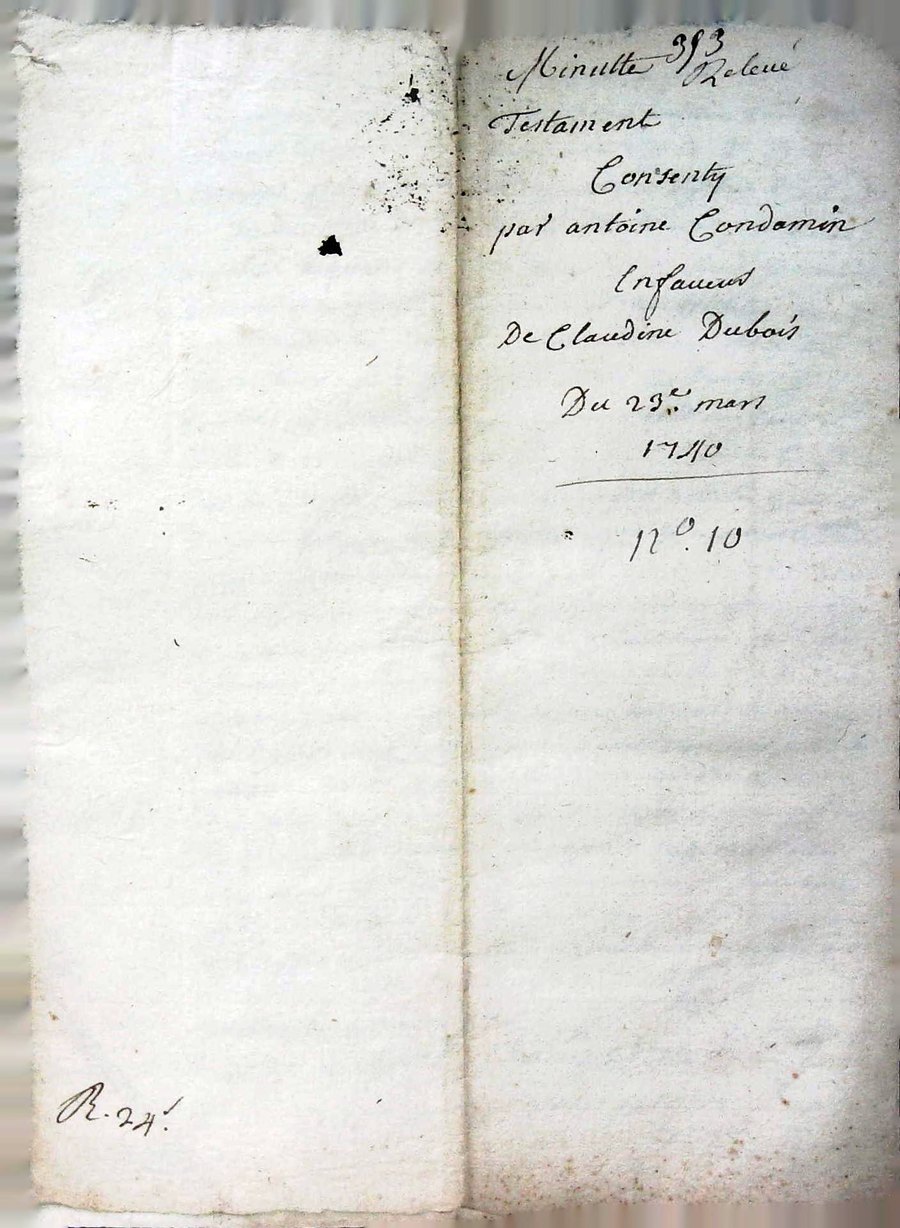 Minutte 393 Relevé
Testament
Consenty
par antoine Condamin
Enfaveur
De Claudine Dubois
Du 23e. mars
1740
No. 10
R. 24s.